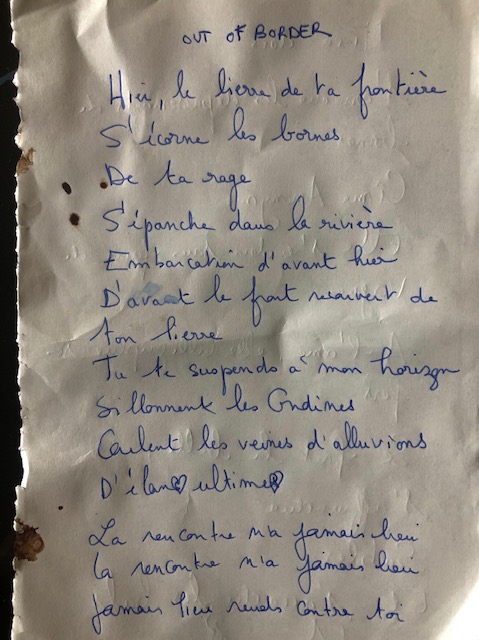 OUT OF BORDER
Hier, le lierre de ta frontière
S'écorne les bornes
De ta rage
S'épanche dans la rivière
Embarcation d'avant hier
D'avant le front recouvert de
ton lierre
Tu te suspends à mon horizon
Sillonnent les Ondines
Coulent les veines d'alluvions
D'élan ultime
La rencontre n'a jamais lieu
la rencontre n'a jamais lieu
Jamais lieu contre toi